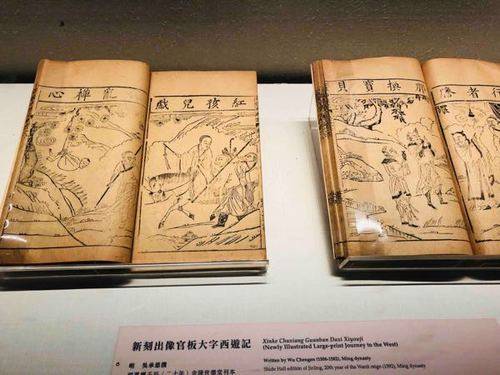 紅孩兒戲
亂禪心
行者孫
換寶貝
新刻出像官板大字西遊記
明 吳承恩撰
明萬曆壬辰(二十年)金陵世德堂刊本
Xinke Chuxiang Guanban Dazi Xiyouji
(Newly Illustrated Large-print Journey to the West)
Written by Wu Chengen (1506-1582), Ming dynasty
Shide Hall edition of Jinling, 20th year of the Wanli reign (1592), Ming dynasty